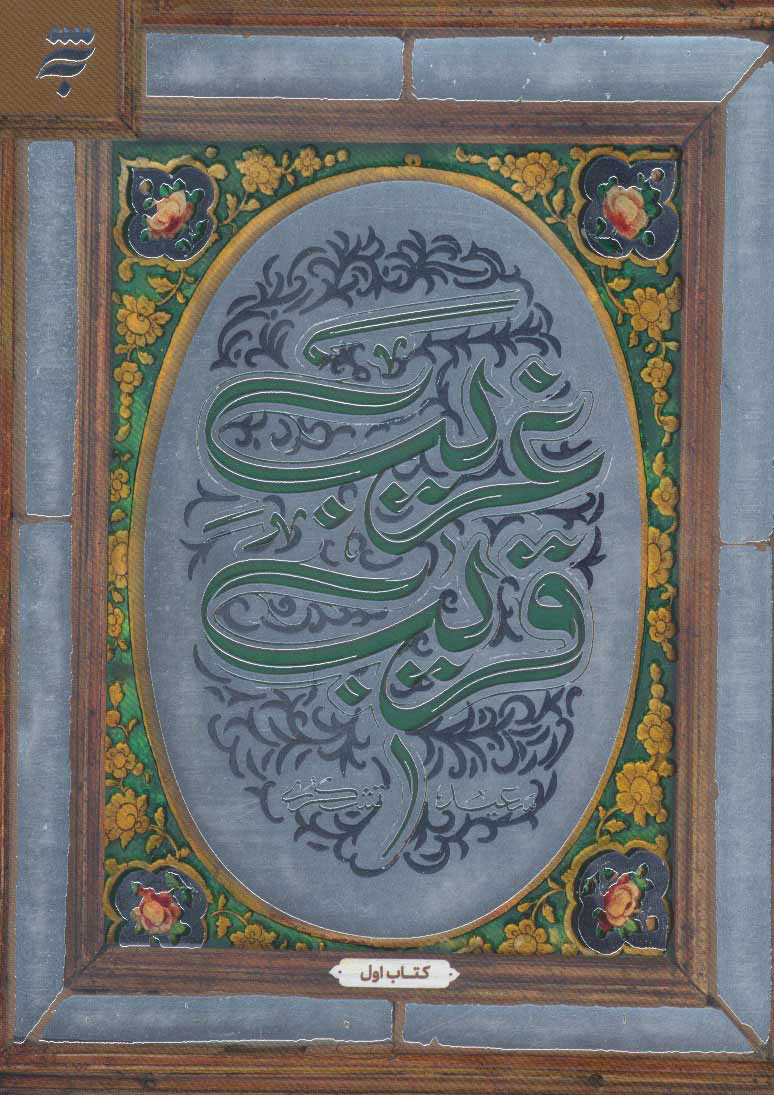 غریب
قریب
۱
سعید تشکری
کتاب اول